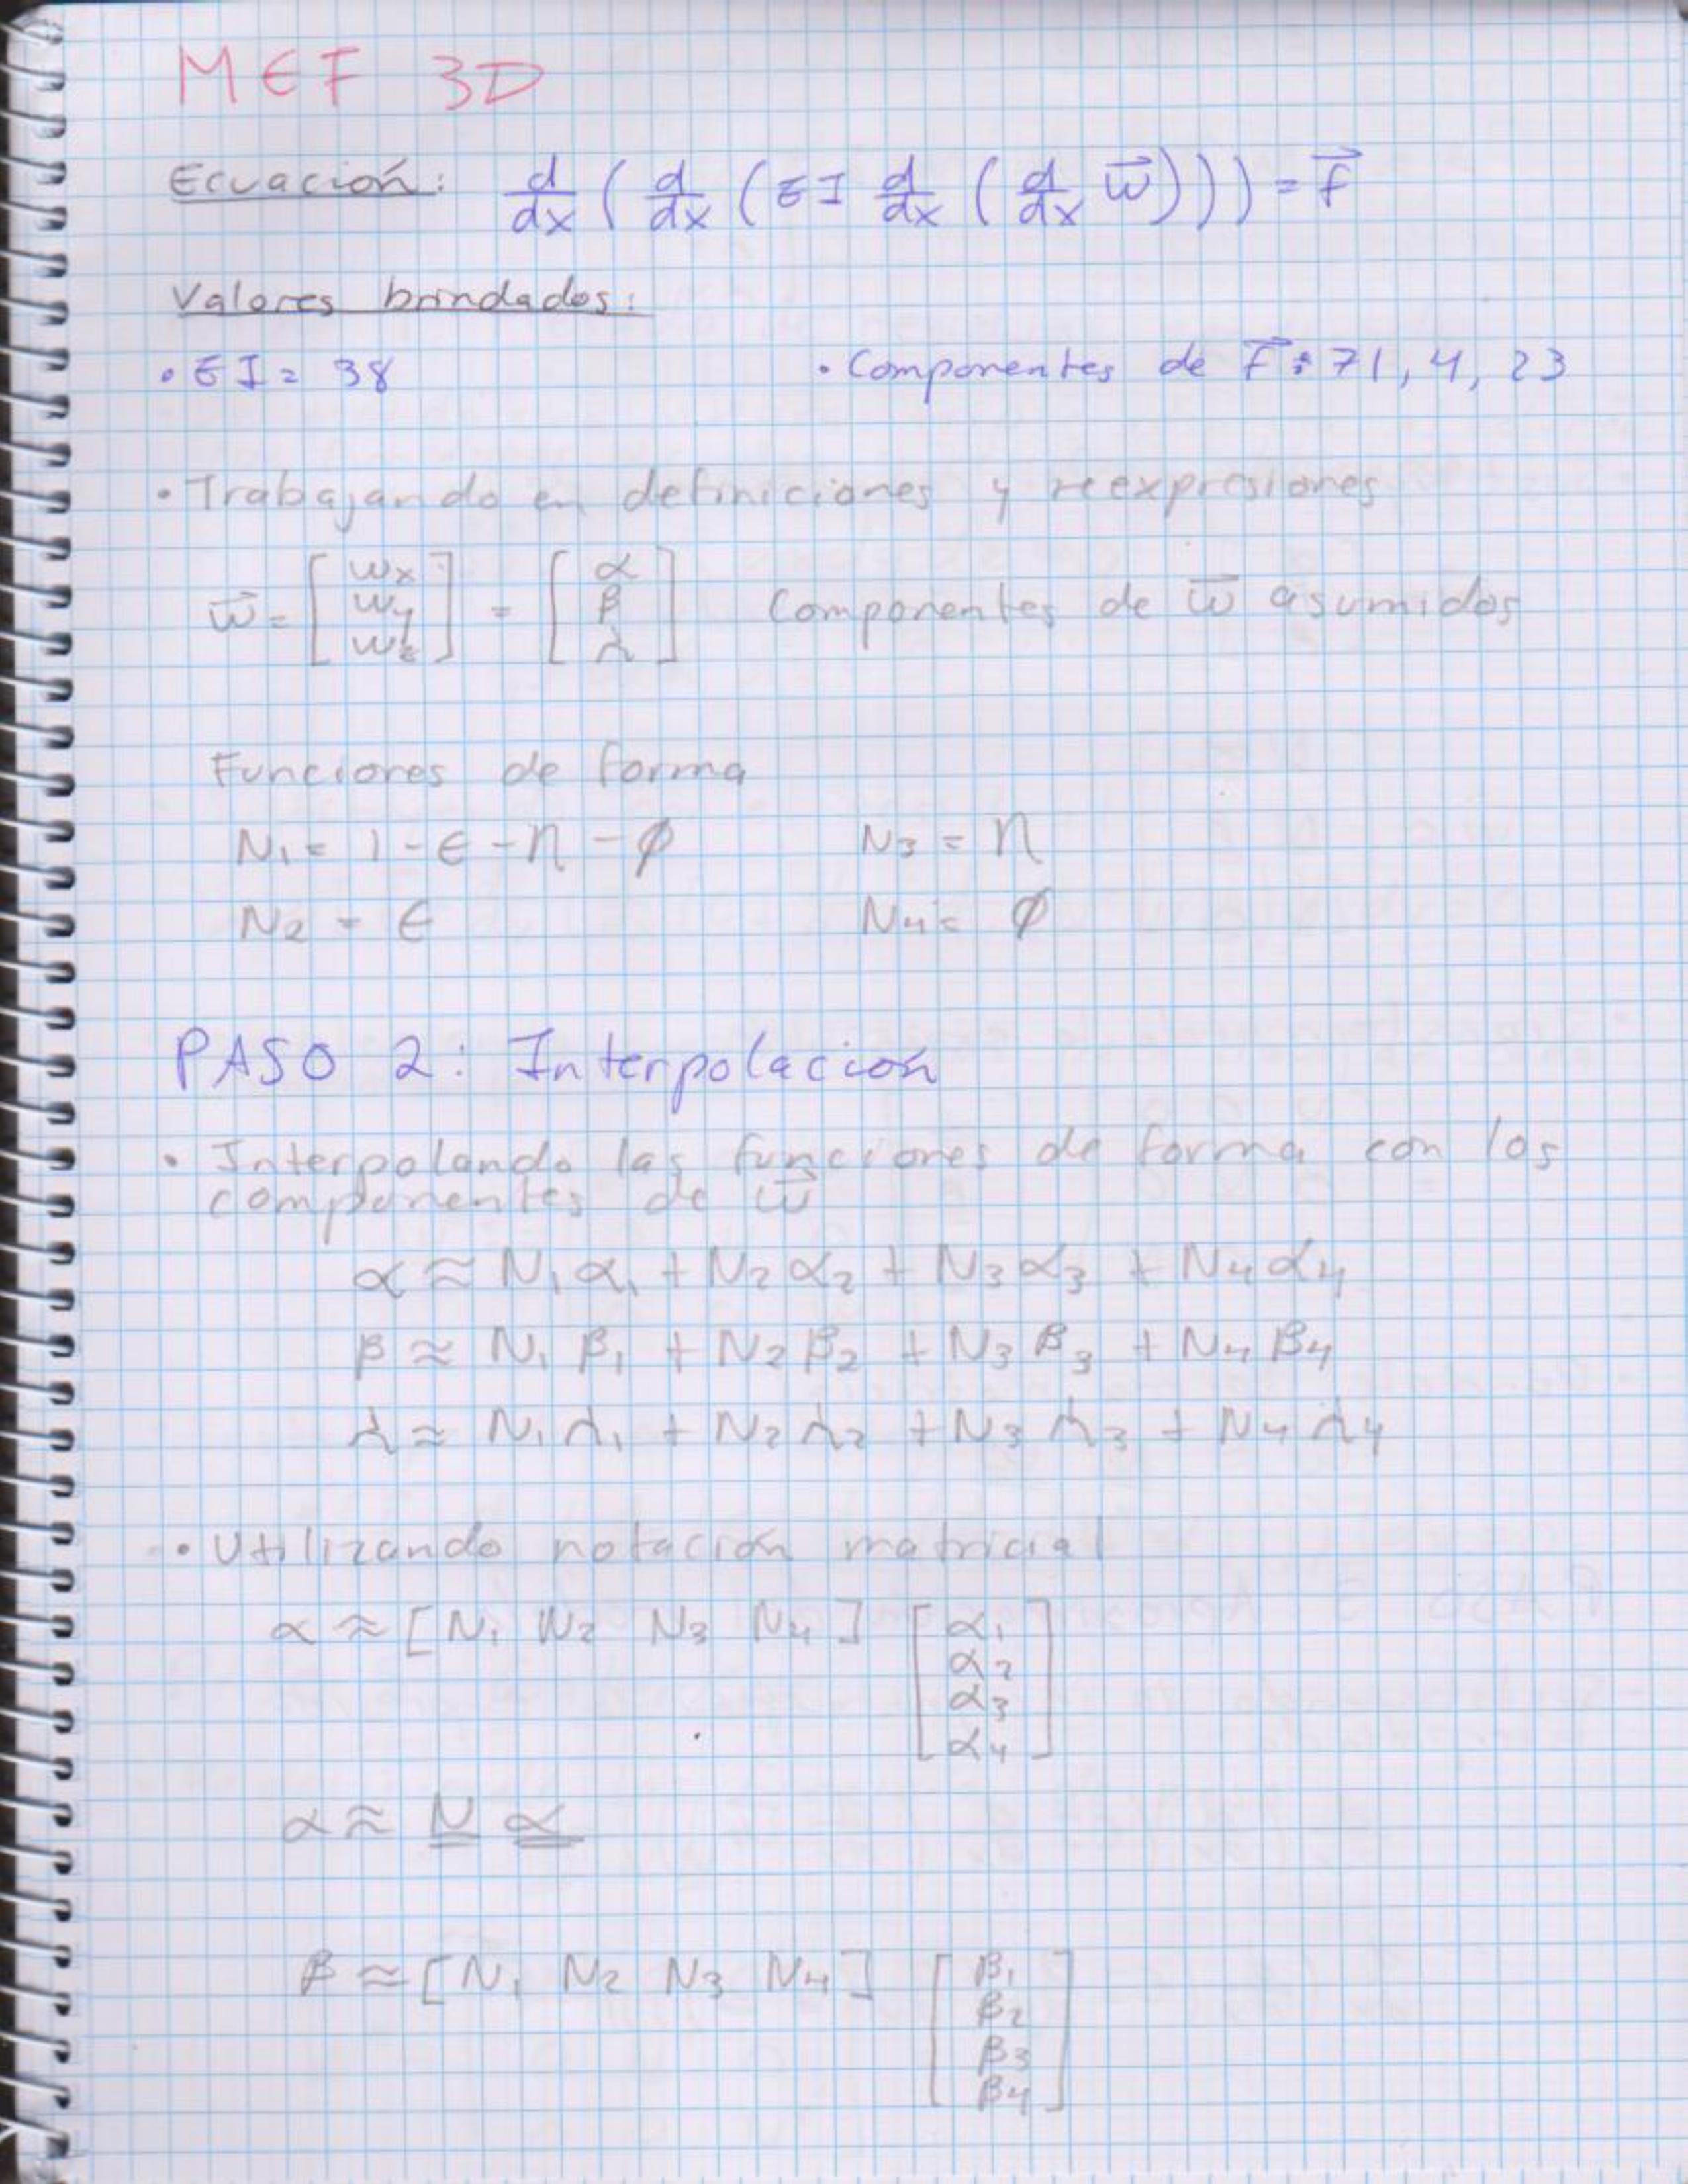 MEF 3D
Ecuación: d/dx ( d/dx ( EI d/dx ( d/dx w⃗ ))) = f⃗
Valores brindados:
• EI = 38 • Componentes de f⃗: 71, 4, 23
• Trabajando en definiciones y reexpresiones
w⃗ = [ wx wy wz ] = [ α β λ ] Componentes de w⃗ asumidos
Funciones de forma
N1 = 1 - ϵ - η - ϕ N3 = η
N2 = ϵ N4 = ϕ
PASO 2: Interpolación
• Interpolando las funciones de forma con los
componentes de w⃗
α ≈ N1 α1 + N2 α2 + N3 α3 + N4 α4
β ≈ N1 β1 + N2 β2 + N3 β3 + N4 β4
λ ≈ N1 λ1 + N2 λ2 + N3 λ3 + N4 λ4
• Utilizando notación matricial
α ≈ [ N1 N2 N3 N4 ] [ α1
α2
α3
α4 ]
α ≈ N α
β ≈ [ N1 N2 N3 N4 ] [ β1
β2
β3
β4 ]